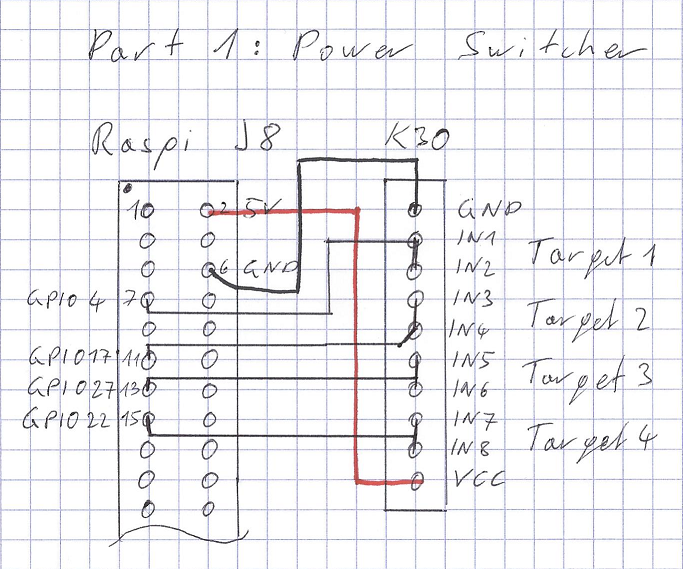 Part 1: Power Switcher
Raspi J8 K30
1 2 5V GND
IN1
6 GND IN2 Target 1
GPIO 4 7 IN3
IN4 Target 2
GPIO17 11 IN5
GPIO27 13 IN6 Target 3
GPIO22 15 IN7
IN8 Target 4
VCC